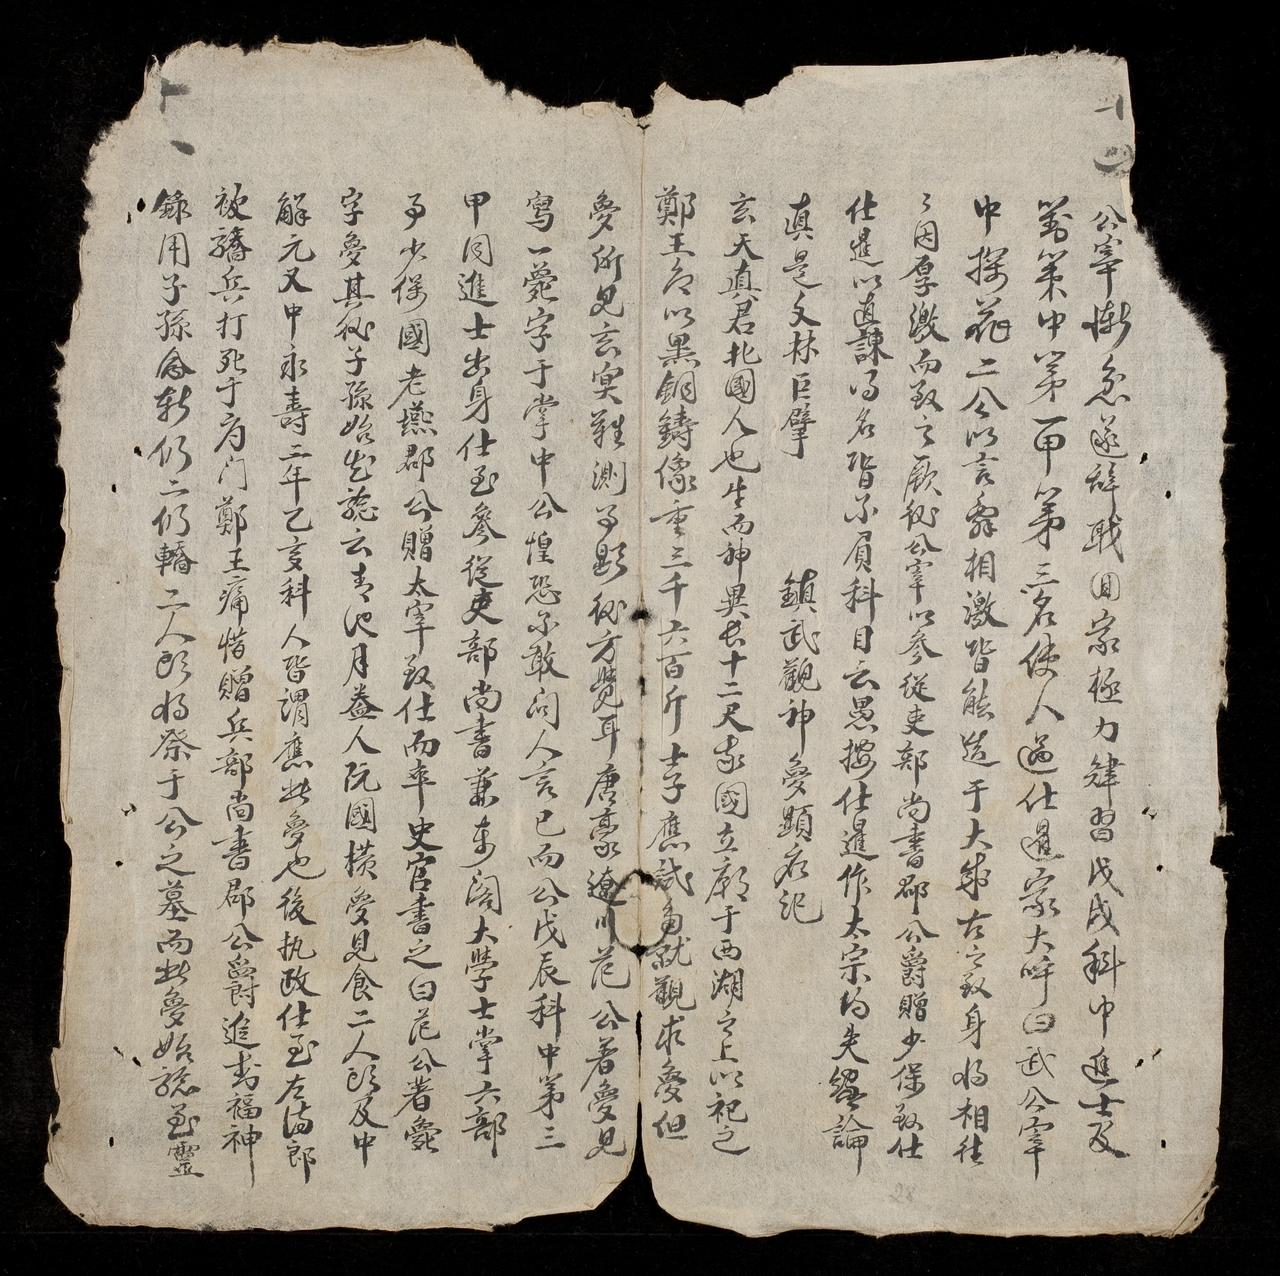 公宰慚忿遂辞職囬家極力肄習戊戌科中進士及
對策中第一甲第三名使人過仕暹家大呼曰武公宰
中探花二公以言辞相激皆能造于大成古之致身将相往
〻因厚激而致之厥後公宰以參從吏部尚書郡公爵贈少保致仕
仕暹以直諫得名皆不負科目云愚按仕暹作太宗得失総論
真是文林巨擘
鎮武觀神夢顯應記
玄天真君北國人也生而神異長十二尺我國立廟于西湖之上以祀之
鄭王命以黑銅鑄像重三千六百斤士子應試多就觀求夢但
夢所見玄冥難測事顯後方覺耳唐豪遼川范公著夢見
寫一薨字于掌中公惶恐不敢向人言已而公戊辰科中第三
甲同進士出身仕至參從吏部尚書兼東閣大學士掌六部
事少保國老燕郡公贈太宰致仕而卒史官書之曰范公著薨
字夢其後子孫始敢説云青池月盎人阮國橫夢見食二人頭及中
解元又中永壽二年己亥科人皆謂應此夢也後執政仕至左侍郎
被驕兵打死于府门鄭王痛惜贈兵部尚書郡公爵追封福神
錄用子孫拿斬仍二仍轎二人頭将祭于公之墓而此夢始驗至靈